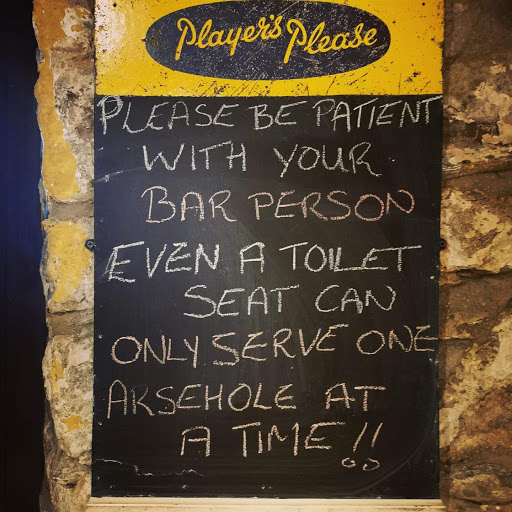 Player's Please
PLEASE BE PATIENT
WITH YOUR
BAR PERSON
EVEN A TOILET
SEAT CAN
ONLY SERVE ONE
ARSEHOLE AT
A TIME!!